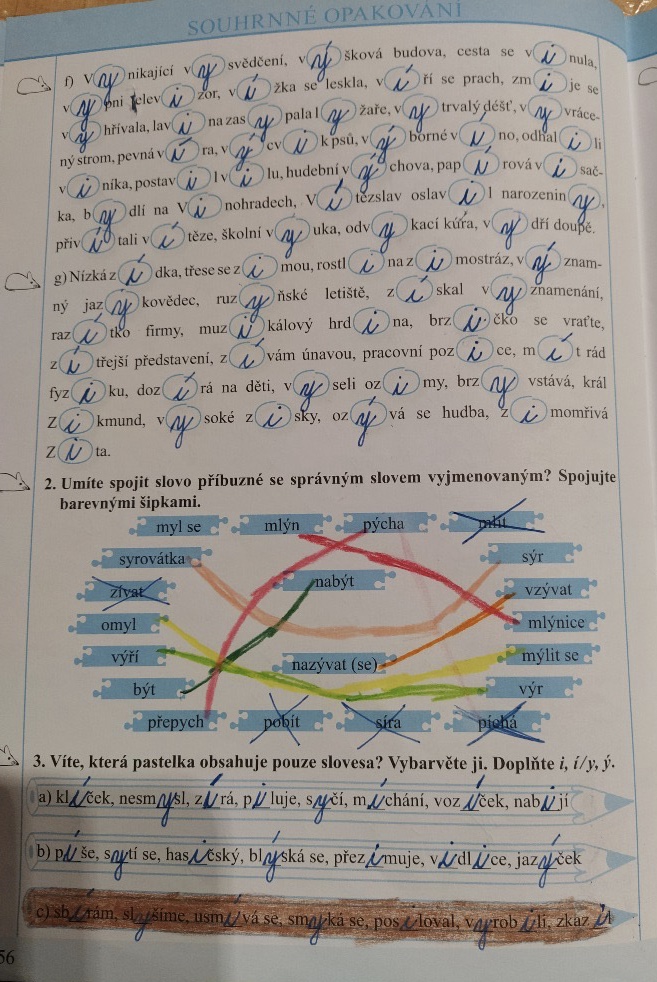 SOUHRNNÉ OPAKOVÁNÍ
f) Vynikající vysvědčení, výšková budova, cesta se vinula,
vypni televizor, vížka se leskla, víří se prach, zmije se
vyhřívala, lavina zasypala lyžaře, vytrvalý déšť, vyvráce-
ný strom, pevná víra, výcvik psů, výborné víno, odhalili
viníka, postavil vilu, hudební výchova, papírová visač-
ka, bydlí na Vinohradech, Vítězslav oslavil narozeniny,
přivítali vítěze, školní výuka, odvykací kúra, vydří doupě.
g) Nízká zídka, třese se zimou, rostlina zimostráz, význam-
ný jazykovědec, ruzyňské letiště, získal vyznamenání,
razítko firmy, muzikálový hrdina, brzičko se vraťte,
zítřejší představení, zívám únavou, pracovní pozice, mít rád
fyziku, dozírá na děti, vyseli ozimy, brzy vstává, král
Zikmund, vysoké zisky, ozývá se hudba, zimomřivá
Zita.
2. Umíte spojit slovo příbuzné se správným slovem vyjmenovaným? Spojujte
barevnými šipkami.
myl se mlýn pýcha milý
syrovátka sýr
zívat nabýt vzývat
omyl mlýnice
výří nazývat (se) mýlit se
být výr
přepych pobít síra píchá
3. Víte, která pastelka obsahuje pouze slovesa? Vybarvěte ji. Doplňte i, í/y, ý.
a) klíček, nesmysl, zírá, piluje, syčí, míchání, vozíček, nabijí
b) píše, sytí se, hasičský, blýská se, přezimuje, vidlice, jazýček
c) sbírám, slyšíme, usmívá se, smýká se, posiloval, vyrobili, zkazit
56